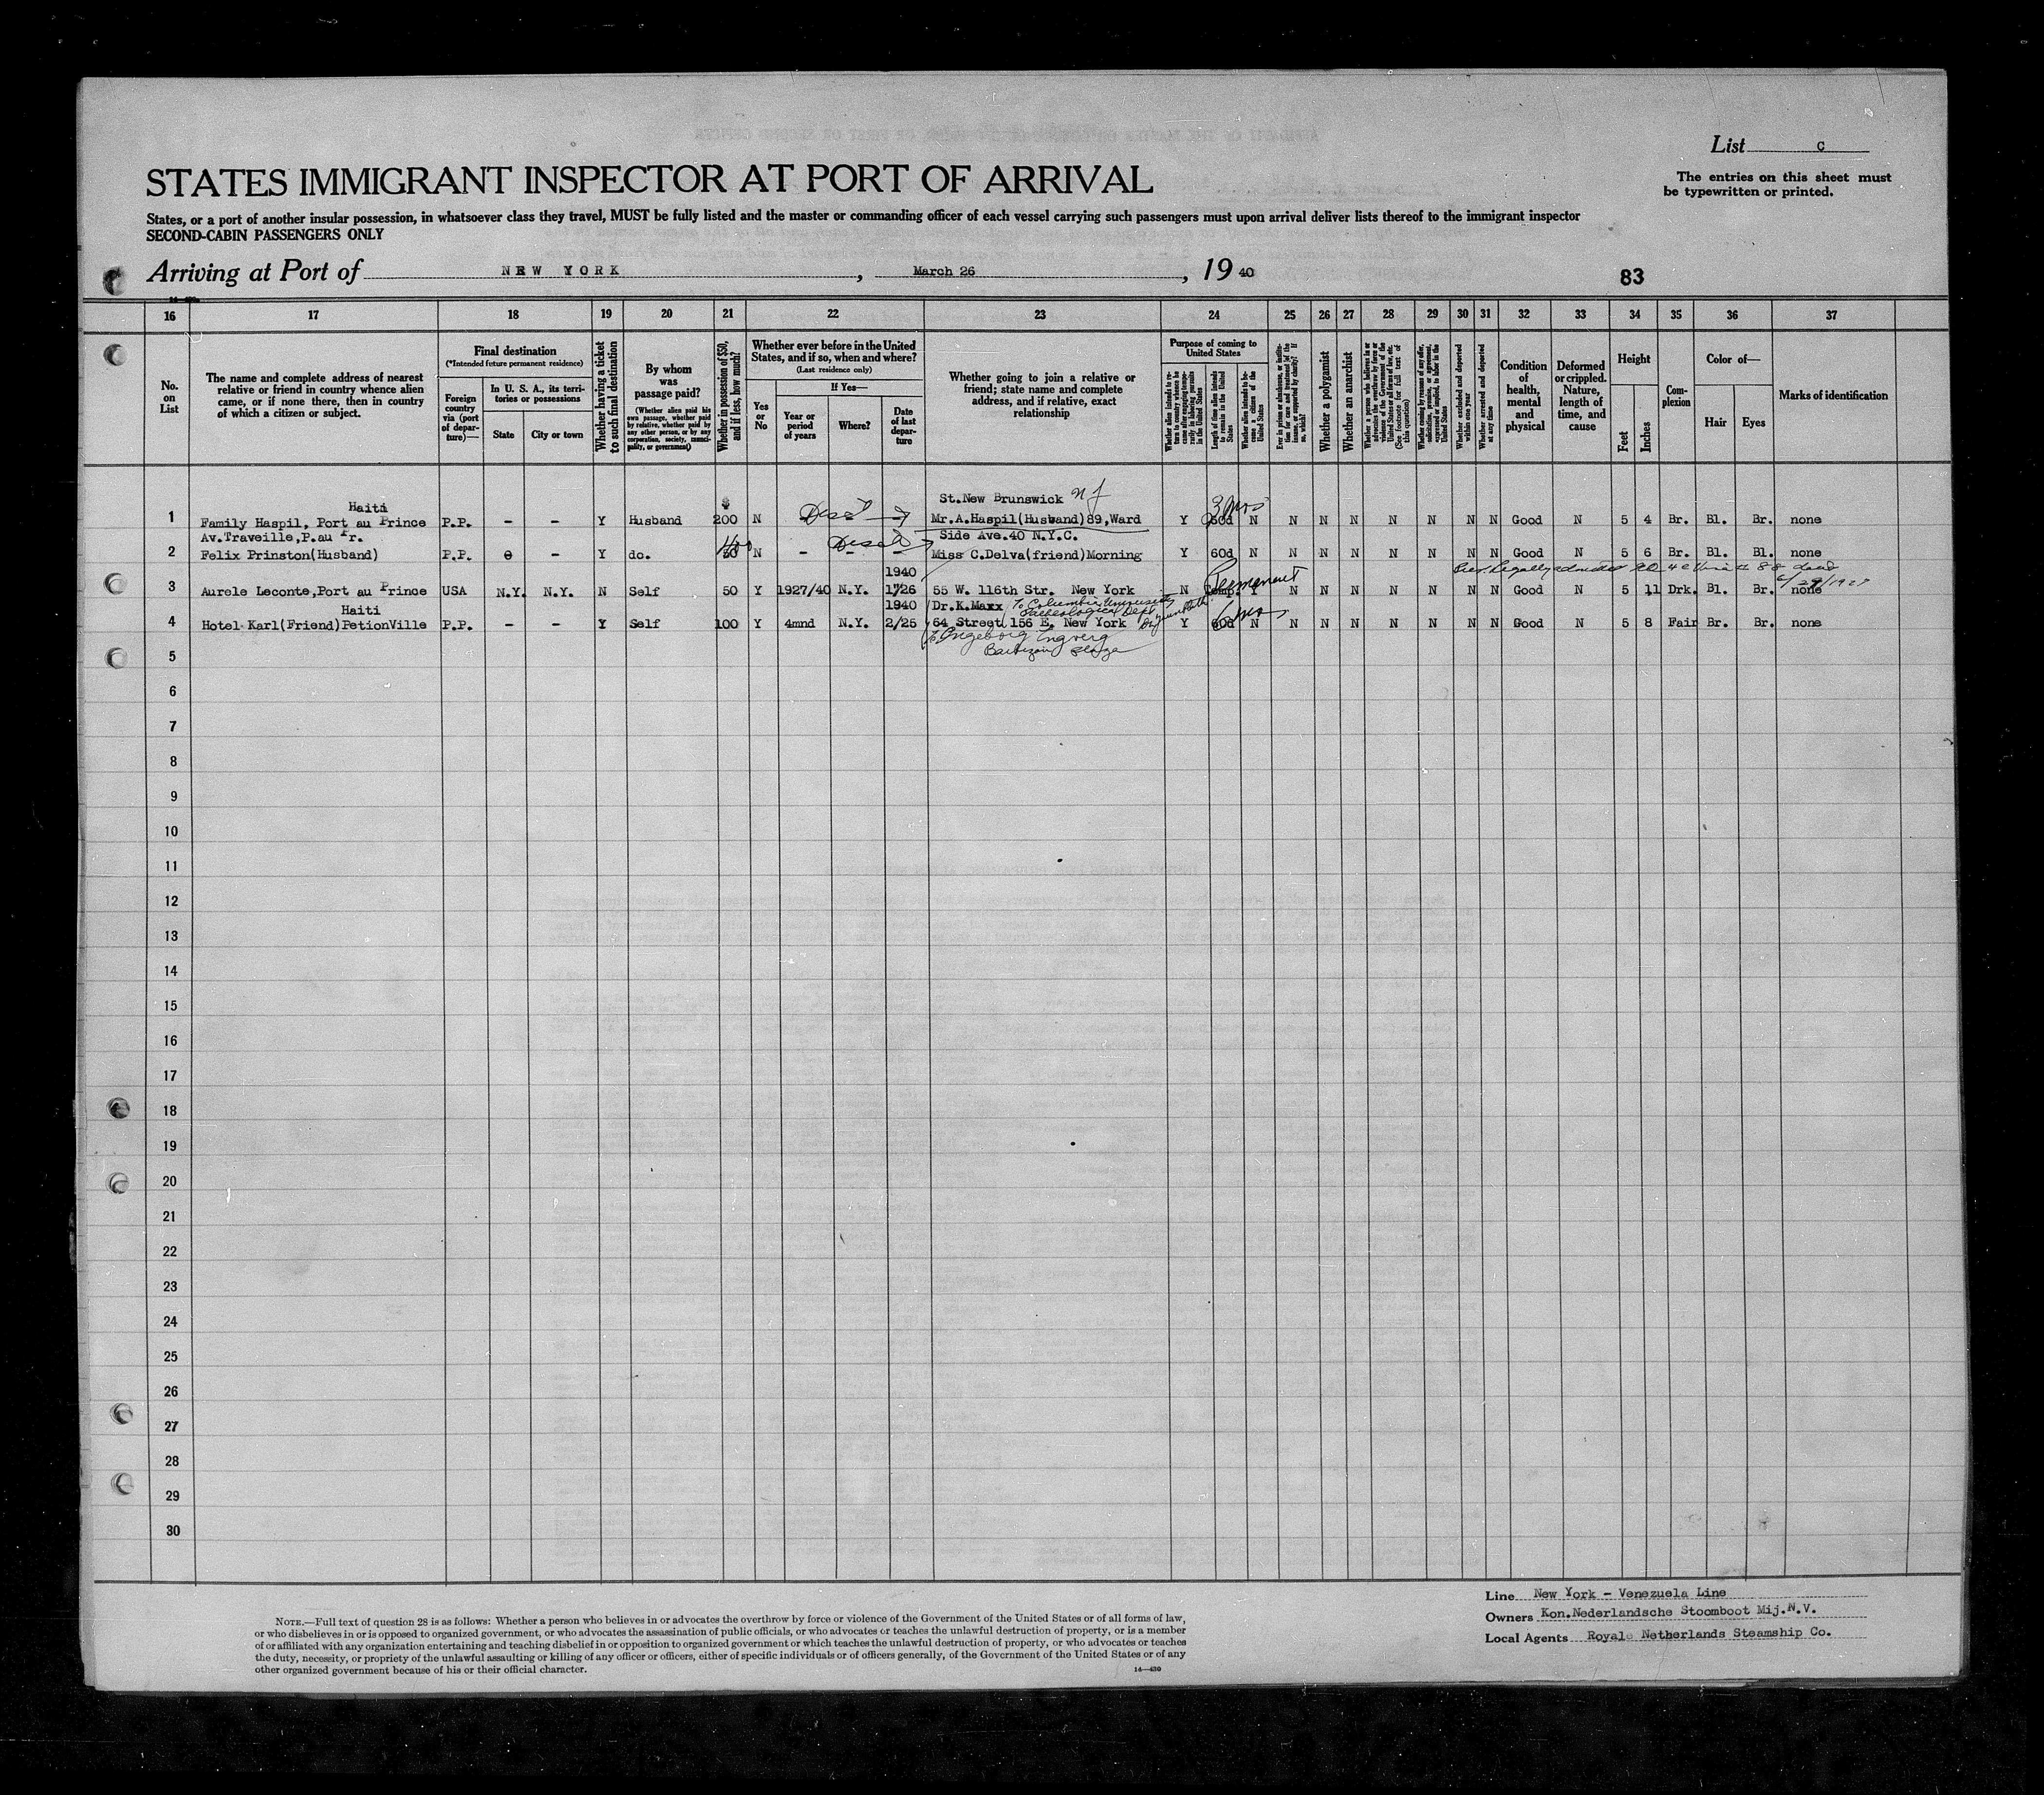 List C
STATES IMMIGRANT INSPECTOR AT PORT OF ARRIVAL
The entries on this sheet must
be typewritten or printed.
States, or a port of another insular possession, in whatsoever class they travel, MUST be fully listed and the master or commanding officer of each vessel carrying such passengers must upon arrival deliver lists thereof to the immigrant inspector
SECOND-CABIN PASSENGERS ONLY
Arriving at Port of NEW YORK, March 26, 19 40
83
16 17 18 19 20 21 22 23 24 25 26 27 28 29 30 31 32 33 34 35 36 37
No. on List
The name and complete address of nearest relative or friend in country whence alien came, or if none there, then in country of which a citizen or subject.
Final destination
(*Intended future permanent residence)
Foreign country via (port of departure)—
In U. S. A., its territories or possessions
State
City or town
Whether having a ticket to such final destination
By whom was passage paid?
(Whether alien paid his own passage, whether paid by relative, whether paid by any other person, or by any corporation, society, municipality, or government)
Whether in possession of $50, and if less, how much?
Whether ever before in the United States, and if so, when and where?
(Last residence only)
Yes or No
If Yes—
Year or period of years
Where?
Date of last departure
Whether going to join a relative or friend; state name and complete address, and if relative, exact relationship
Purpose of coming to United States
Length of time alien intends to remain in the United States
Whether alien intends to become a citizen of the United States
Whether a polygamist
Whether an anarchist
Whether excluded and deported within one year
Whether arrested and deported at any time
Condition of health, mental and physical
Deformed or crippled. Nature, length of time, and cause
Height
Feet
Inches
Complexion
Color of—
Hair
Eyes
Marks of identification
Haiti $ St.New Brunswick NJ 3 mos
1 Family Haspil, Port au Prince P.P. - - Y Husband 200 N Mr.A.Haspil(Husband)89,Ward Y 60d N N N N N N N N Good N 5 4 Br. Bl. Br. none
Av.Traveille,P.au Pr. Side Ave.40 N.Y.C.
2 Felix Prinston(Husband) P.P. - - Y do. 50 N - - - Miss C.Delva(friend)Morning Y 60d N N N N N N N N Good N 5 6 Br. Bl. Bl. none
1940 Permanent
3 Aurele Leconte,Port au Prince USA N.Y. N.Y. N Self 50 Y 1927/40 N.Y. 1/26 55 W. 116th Str. New York N Temp. Y N N N N N N N Good N 5 11 Drk. Bl. Br. none 6/29/1927
Haiti 1940 Dr.K.Maxx To Columbia University 6 mos
4 Hotel Karl(Friend)PetionVille P.P. - - Y Self 100 Y 4mnd N.Y. 2/25 64 Street, 156 E. New York Y 60d N N N N N N N N Good N 5 8 Fair Br. Br. none
5
6
7
8
9
10
11
12
13
14
15
16
17
18
19
20
21
22
23
24
25
26
27
28
29
30
NOTE.—Full text of question 28 is as follows: Whether a person who believes in or advocates the overthrow by force or violence of the Government of the United States or of all forms of law,
or who disbelieves in or is opposed to organized government, or who advocates the assassination of public officials, or who advocates or teaches the unlawful destruction of property, or is a member
of or affiliated with any organization entertaining and teaching disbelief in or opposition to organized government or which teaches the unlawful destruction of property, or who advocates or teaches
the duty, necessity, or propriety of the unlawful assaulting or killing of any officer or officers, either of specific individuals or of officers generally, of the Government of the United States or of any
other organized government because of his or their official character.
14—430
Line New York - Venezuela Line
Owners Kon.Nederlandsche Stoomboot Mij.N.V.
Local Agents Royale Netherlands Steamship Co.